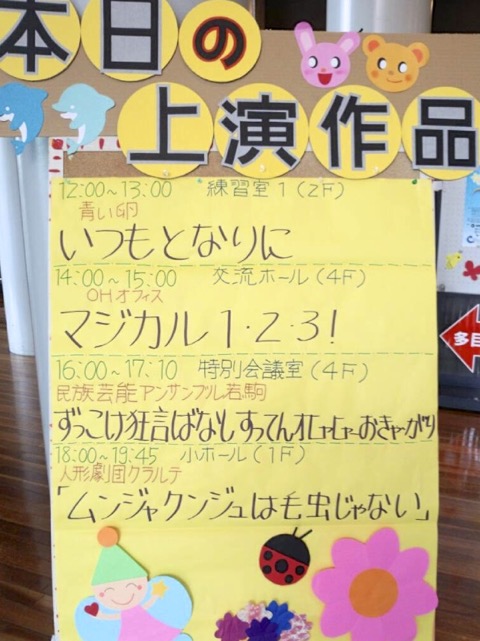 本日の
上演作品
12:00~13:00 練習室1(2F)
青い卵
いつもとなりに
14:00~15:00 交流ホール(4F)
OHオフィス
マジカル1・2・3!
16:00~17:10 特別会議室(4F)
民族芸能アンサンブル若駒
ずっこけ狂言ばなし すってん
18:00~19:45 小ホール(1F)
人形劇団クラルテ
「ムンジャクンジュは毛虫じゃない」
多目